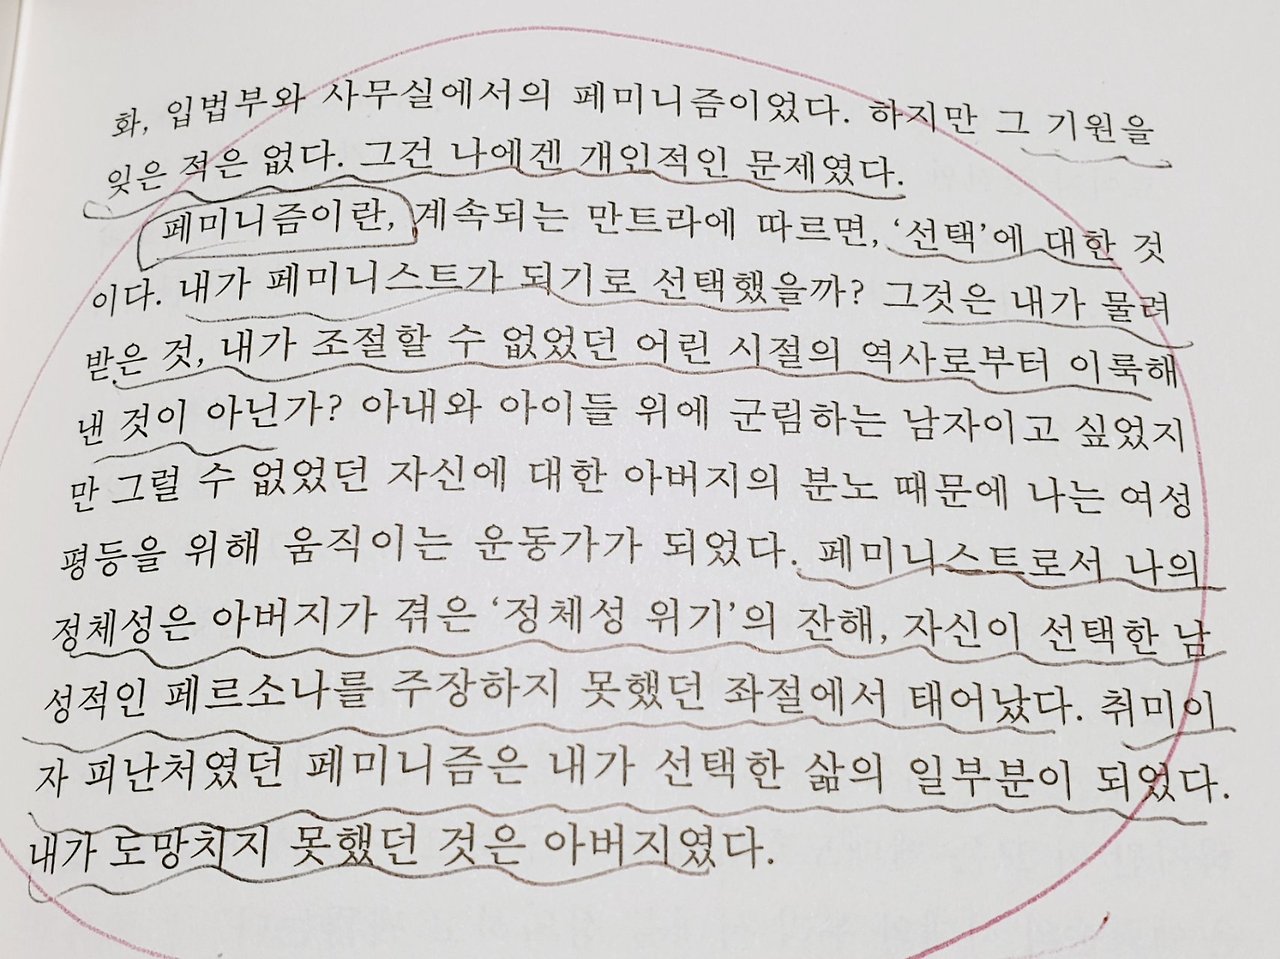 화, 입법부와 사무실에서의 페미니즘이었다. 하지만 그 기원을
잊은 적은 없다. 그건 나에겐 개인적인 문제였다.
페미니즘이란, 계속되는 만트라에 따르면, ‘선택’에 대한 것
이다. 내가 페미니스트가 되기로 선택했을까? 그것은 내가 물려
받은 것, 내가 조절할 수 없었던 어린 시절의 역사로부터 이룩해
낸 것이 아닌가? 아내와 아이들 위에 군림하는 남자이고 싶었지
만 그럴 수 없었던 자신에 대한 아버지의 분노 때문에 나는 여성
평등을 위해 움직이는 운동가가 되었다. 페미니스트로서 나의
정체성은 아버지가 겪은 ‘정체성 위기’의 잔해, 자신이 선택한 남
성적인 페르소나를 주장하지 못했던 좌절에서 태어났다. 취미이
자 피난처였던 페미니즘은 내가 선택한 삶의 일부분이 되었다.
내가 도망치지 못했던 것은 아버지였다.